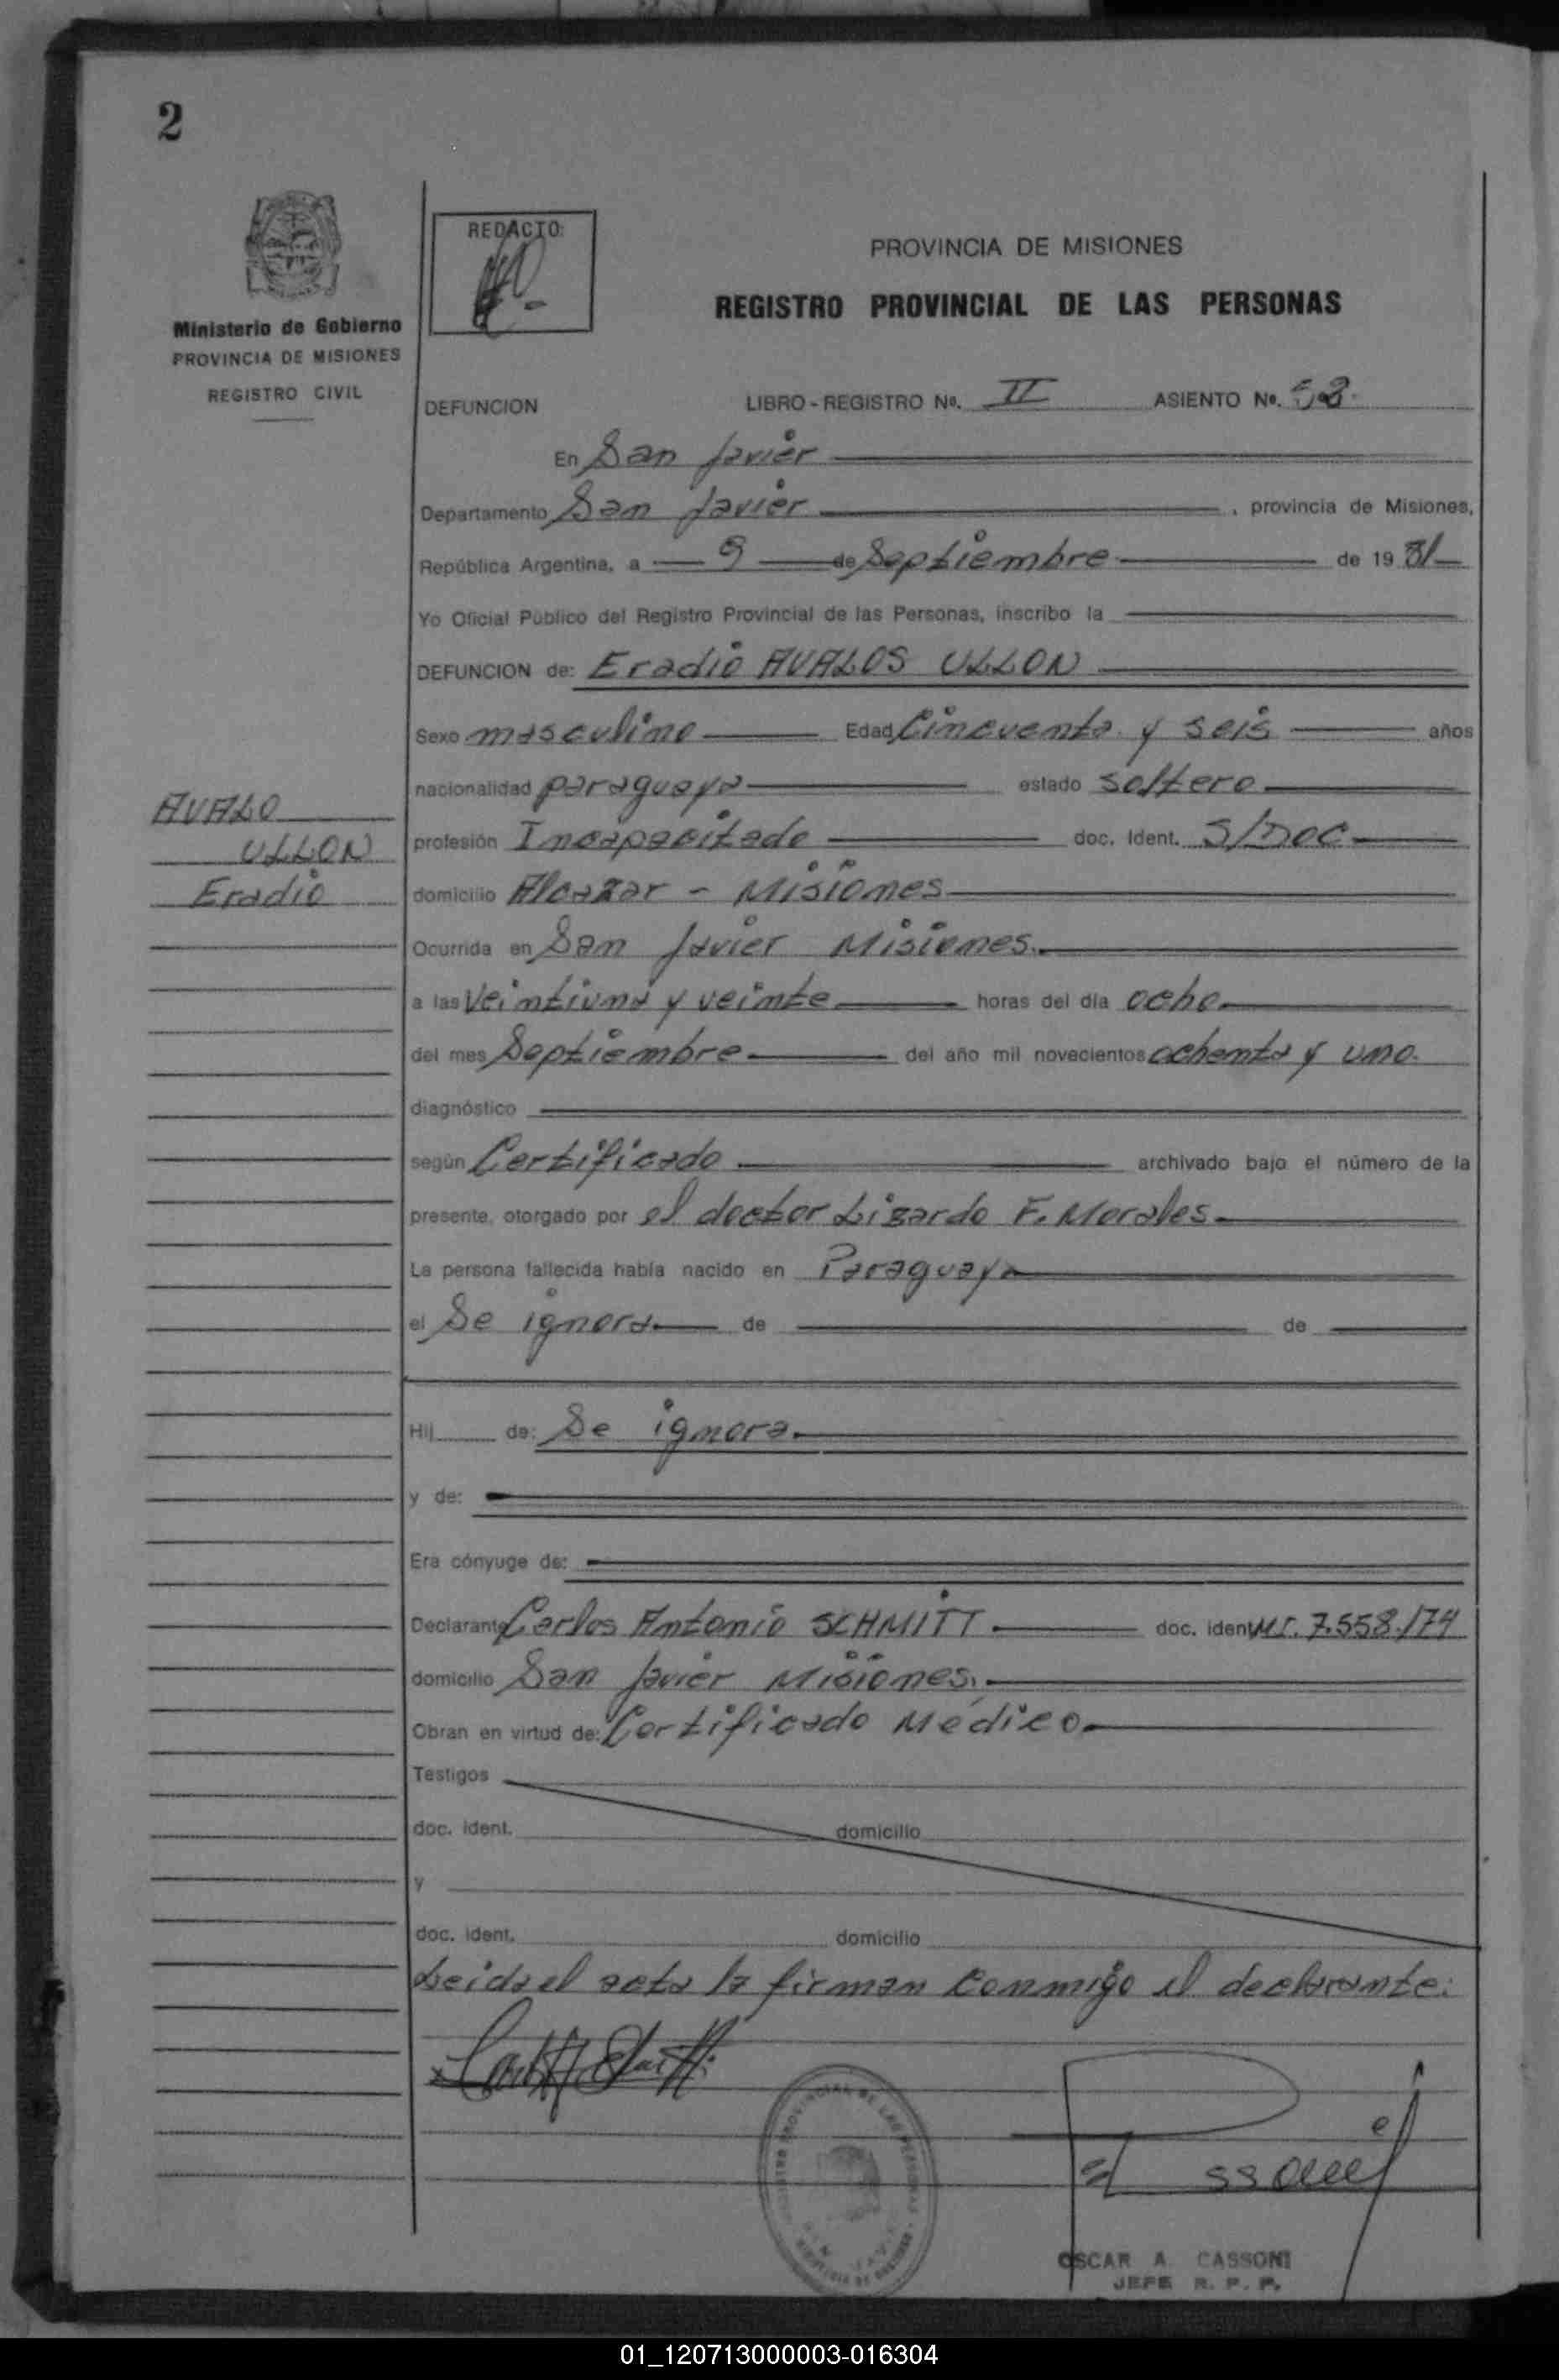 2
REDACTO:
PROVINCIA DE MISIONES
REGISTRO PROVINCIAL DE LAS PERSONAS
Ministerio de Gobierno
PROVINCIA DE MISIONES
REGISTRO CIVIL
DEFUNCION LIBRO - REGISTRO No. II ASIENTO No. 58.
En San Javier
Departamento San Javier, provincia de Misiones,
República Argentina, a 9 de Septiembre de 19 81
Yo Oficial Público del Registro Provincial de las Personas, inscribo la
DEFUNCION de: Eradio AVALOS ULLON
Sexo masculino Edad Cincuenta y seis años
nacionalidad paraguaya estado soltero
AVALO
ULLON
Eradio
profesión Incapacitado doc. Ident. S/DOC
domicilio Alcazar - Misiones
Ocurrida en San Javier Misiones.
a las Veintiuna y veinte horas del día ocho
del mes Septiembre del año mil novecientos ochenta y uno.
diagnóstico
según Certificado archivado bajo el número de la
presente, otorgado por el doctor Lizardo F. Morales
La persona fallecida había nacido en Paraguay
el Se ignora de de
Hij de: Se ignora
y de:
Era cónyuge de:
Declarante Carlos Antonio SCHMITT doc. ident M.I. 7.558.174
domicilio San Javier Misiones.
Obran en virtud de: Certificado Medico
Testigos
doc. ident. domicilio
y
doc. ident. domicilio
Leida el acta la firman conmigo el declarante:
OSCAR A. CASSONI
JEFE R. P. P.
01_120713000003-016304